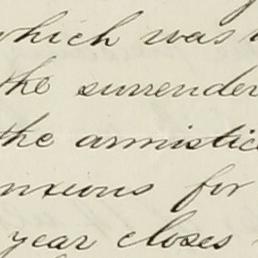 which was
the surrender
the armistice
nxious for
year closes